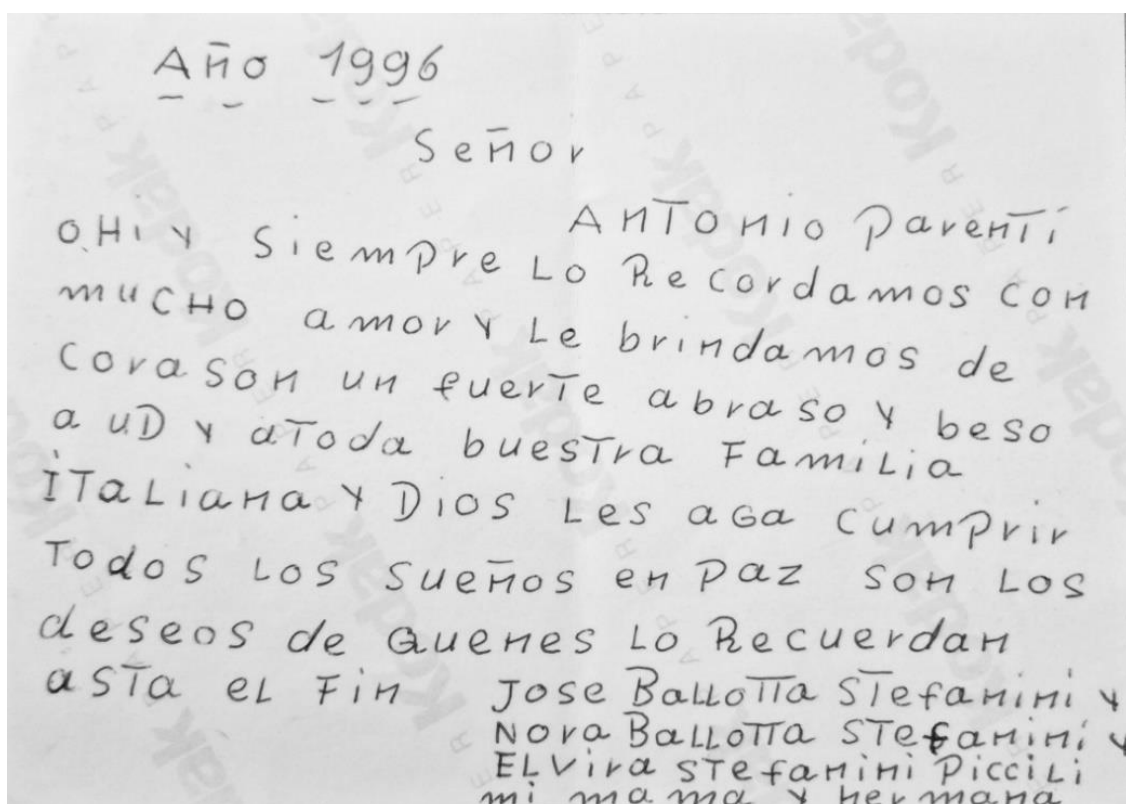 Año 1996
Señor
Antonio Parenti
oHi y siempre Lo Recordamos con
mucHo amor y Le brindamos de
corason un fuerte abraso y beso
a uD y aToda buestra Familia
iTaLiana y Dios Les aGa cumPrir
Todos Los sueños en Paz son Los
deseos de Quenes Lo Recuerdan
asTa eL Fin Jose BaLLoTTa STefanini y
Nora BaLLoTTa STefanini y
ELVira sTefanini PicciLi
mi mama y Hermana
Kodak
PAPER